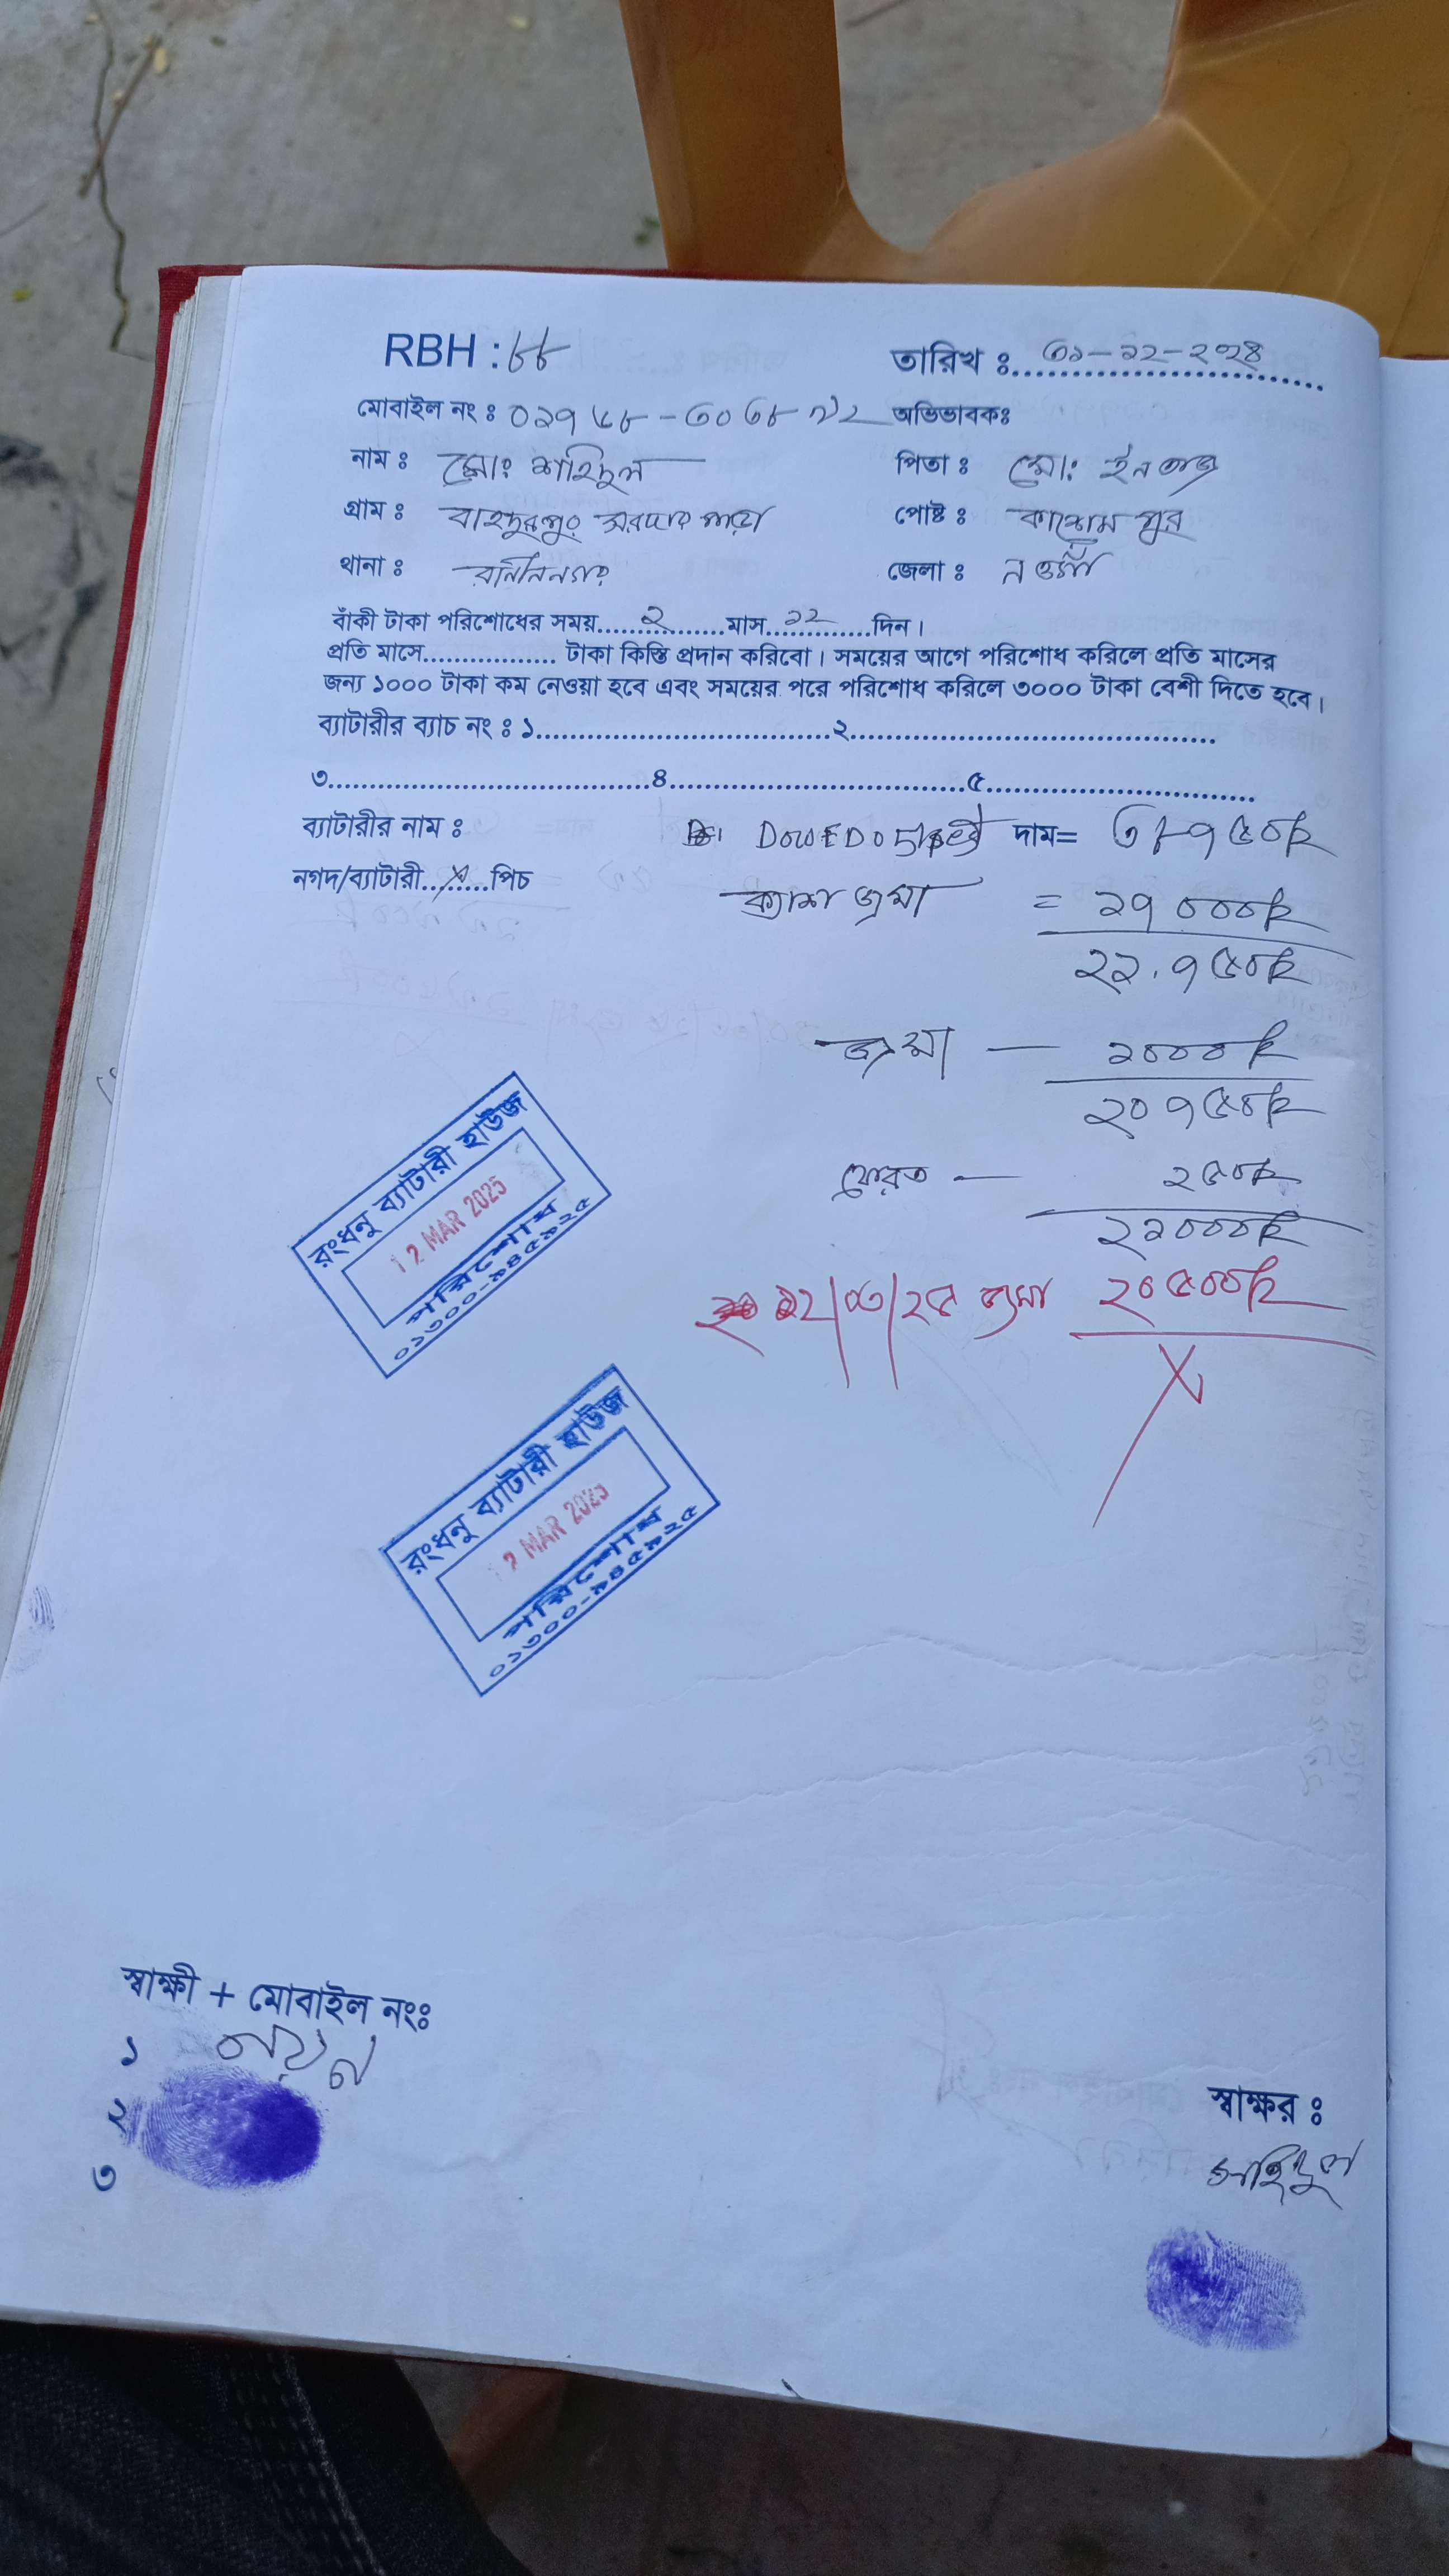 RBH : ৮৮
তারিখ ঃ ৩১-১২-২০২৪
মোবাইল নং ঃ
অভিভাবকঃ
নাম ঃ মোঃ শাহিদুল
পিতা ঃ মোঃ
গ্রাম ঃ
পোষ্ট ঃ কাশেমপুর
থানা ঃ রানীনগর
জেলা ঃ নওগাঁ
বাঁকী টাকা পরিশোধের সময়.....২.....মাস..১২.....দিন।
প্রতি মাসে................ টাকা কিস্তি প্রদান করিবো। সময়ের আগে পরিশোধ করিলে প্রতি মাসের
জন্য ১০০০ টাকা কম নেওয়া হবে এবং সময়ের পরে পরিশোধ করিলে ৩০০০ টাকা বেশী দিতে হবে।
ব্যাটারীর ব্যাচ নং ঃ ১....................................২............................................
৩.......................................৪....................................৫.................................
ব্যাটারীর নাম ঃ
দাম= ৩৮৭৫০
নগদ/ব্যাটারী..X.....পিচ
ক্যাশ জমা = ১৭০০০
২১,৭৫০
জমা — ১০০০
২০৭৫০
ফেরত — ২৫০
২১০০০
১২/০৩/২৫ জমা ২০৫০০
X
রংধনু ব্যাটারী হাউজ
12 MAR 2025
পরিশোধ
০১৩০০-৯৪৫৯২৫
রংধনু ব্যাটারী হাউজ
12 MAR 2025
পরিশোধ
০১৩০০-৯৪৫৯২৫
স্বাক্ষী + মোবাইল নংঃ
১ নয়ন
২
৩
স্বাক্ষর ঃ
শাহিদুল